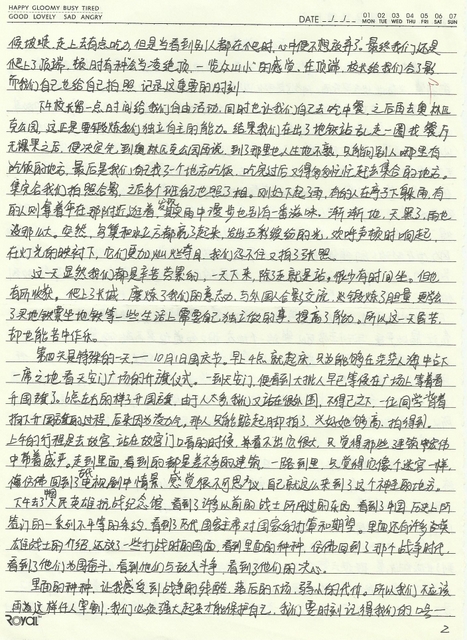 HAPPY GLOOMY BUSY TIRED
GOOD LOVELY SAD ANGRY
DATE __/__/__
01 02 03 04 05 06 07
MON TUE WED THU FRI SAT SUN
很疲惫，走上去有点吃力，但是当看到别人都在爬时，心中便不想放弃了。最终我们还是
爬上了顶端，顿时有种会当凌绝顶，一览众山小的感觉，在顶端，校长给我们合了影
而我们自己也给自己拍照，记录这重要的时刻
下午校长留一点时间给我们自由活动，同时也让我们自己去吃中餐，之后再去奥林匹
克公园，这正是要锻炼我们独立自主的能力。结果我们在出了地铁站乱走一圈找餐厅
无缘果之后，便决定先到奥林匹克公园再说，到了那里也人生地不熟，只能问别人哪里有
吃饭的地方，最后是我们自己找了个地方吃饭，吃完过后又得匆匆忙忙赶去集合的地方。
集完合我们拍照合影，之后各个班自己也照了相。刚好下起了雨，有的人在亭子下躲雨，有
的人则拿着伞在那附近逛着，雨中漫步也别有一番滋味。渐渐地，天黑了，雨也
没那么大。突然，鸟巢和水立方都亮了起来，发出五彩缤纷的光，欢呼声顿时响起，
在灯光的映衬下，它们更加灿烂夺目，我们忍不住又拍了张照。
这一天显然我们都是辛苦劳累的，一天下来，除了走就是站。很少有时间坐。但也
有所收获。爬上了长城，磨炼了我们的意志力，与外国人合影交流，
买地铁票坐地铁等一些生活上需要自己独立做的事，提高了能力。所以这一天虽苦，
却也能苦中作乐。
第四天是特殊的一天——10月1日国庆节。早上4点就起床，只为能够在茫茫人海中占下
一席之地看天安门广场的升旗仪式。一到天安门，便看到大批人早已等候在广场上等着看
升国旗了。6点左右的样子升国旗，由于人太多，我们又站在很外围，不得已之下，一位同学背着
拍下升国旗的过程，后来因为没力气，那人只能踮起脚拍了，兴好他够高，拍得到。
上午的行程是去故宫，站在故宫门口看的时候，并看不出它很大，只觉得那些建筑中宏伟
中带着威严。走到里面，看到的都是差不多的建筑，一路到里，只觉得它像个迷宫一样，
像仿佛回到了电视剧中情景，感觉很不可思议，自己就这么来到了这个神圣的地方。
下午去了中国人民英雄抗战纪念馆，看到了许多以前的战士所用过的东西，看到中国历史上所
签订的一系列不平等的条约，看到了历代国家主席对国家的打算和期望。里面还有许多英
雄战士的介绍，还放了一些打战时的画面，看到里面的种种，仿佛回到了那个战争时代，
看到了他们为国奋斗，看到他们与敌人斗争，看到了他们的决心。
里面的种种，让我感受到战争的残酷，落后的下场，弱小的代价。所以我们不应该
因为这样任人宰割，我们必须强大起来才能保护自己，我们要时刻记得我们的口号——
ROYAL
2